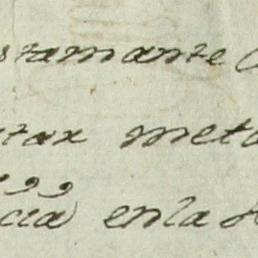 stamante
tax meta
cia enla